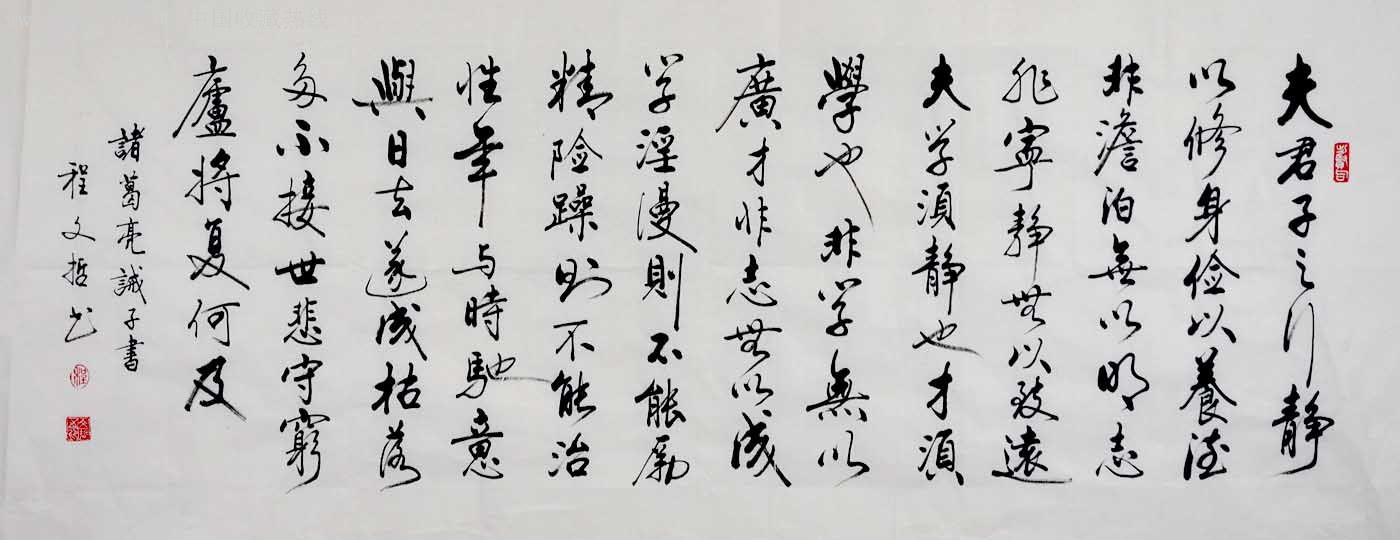 夫君子之行静
以修身俭以養德
非澹泊無以明志
非寧静無以致遠
夫学須静也才須
學也非学無以
廣才非志無以成
学淫漫則不能励
精险躁则不能治
性年与時馳意
與日去遂成枯落
多不接世悲守窮
廬将复何及
諸葛亮誡子書
程文哲书
中国收藏热线